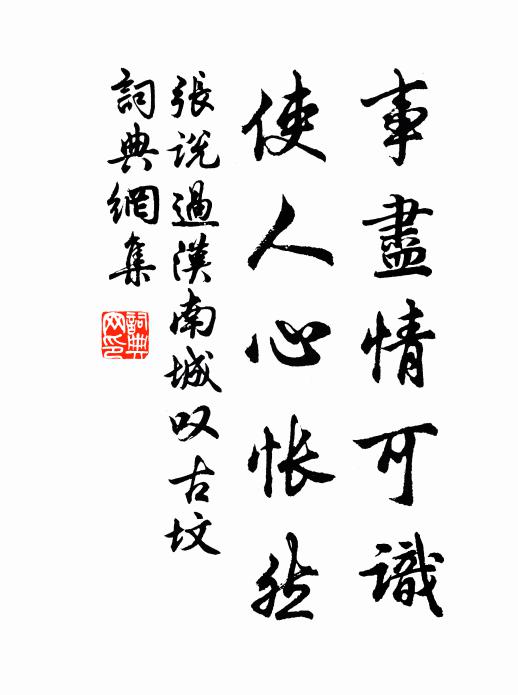 事盡情可識
使人心悵然
張説過漢南城叹古坟
詞典網集
詞典网印